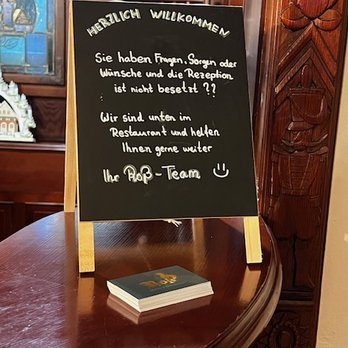 HERZLICH WILLKOMMEN
Sie haben Fragen, Sorgen oder
Wünsche und die Rezeption
ist nicht besetzt ??
Wir sind unten im
Restaurant und helfen
Ihnen gerne weiter
Ihr Roß-Team
Roß